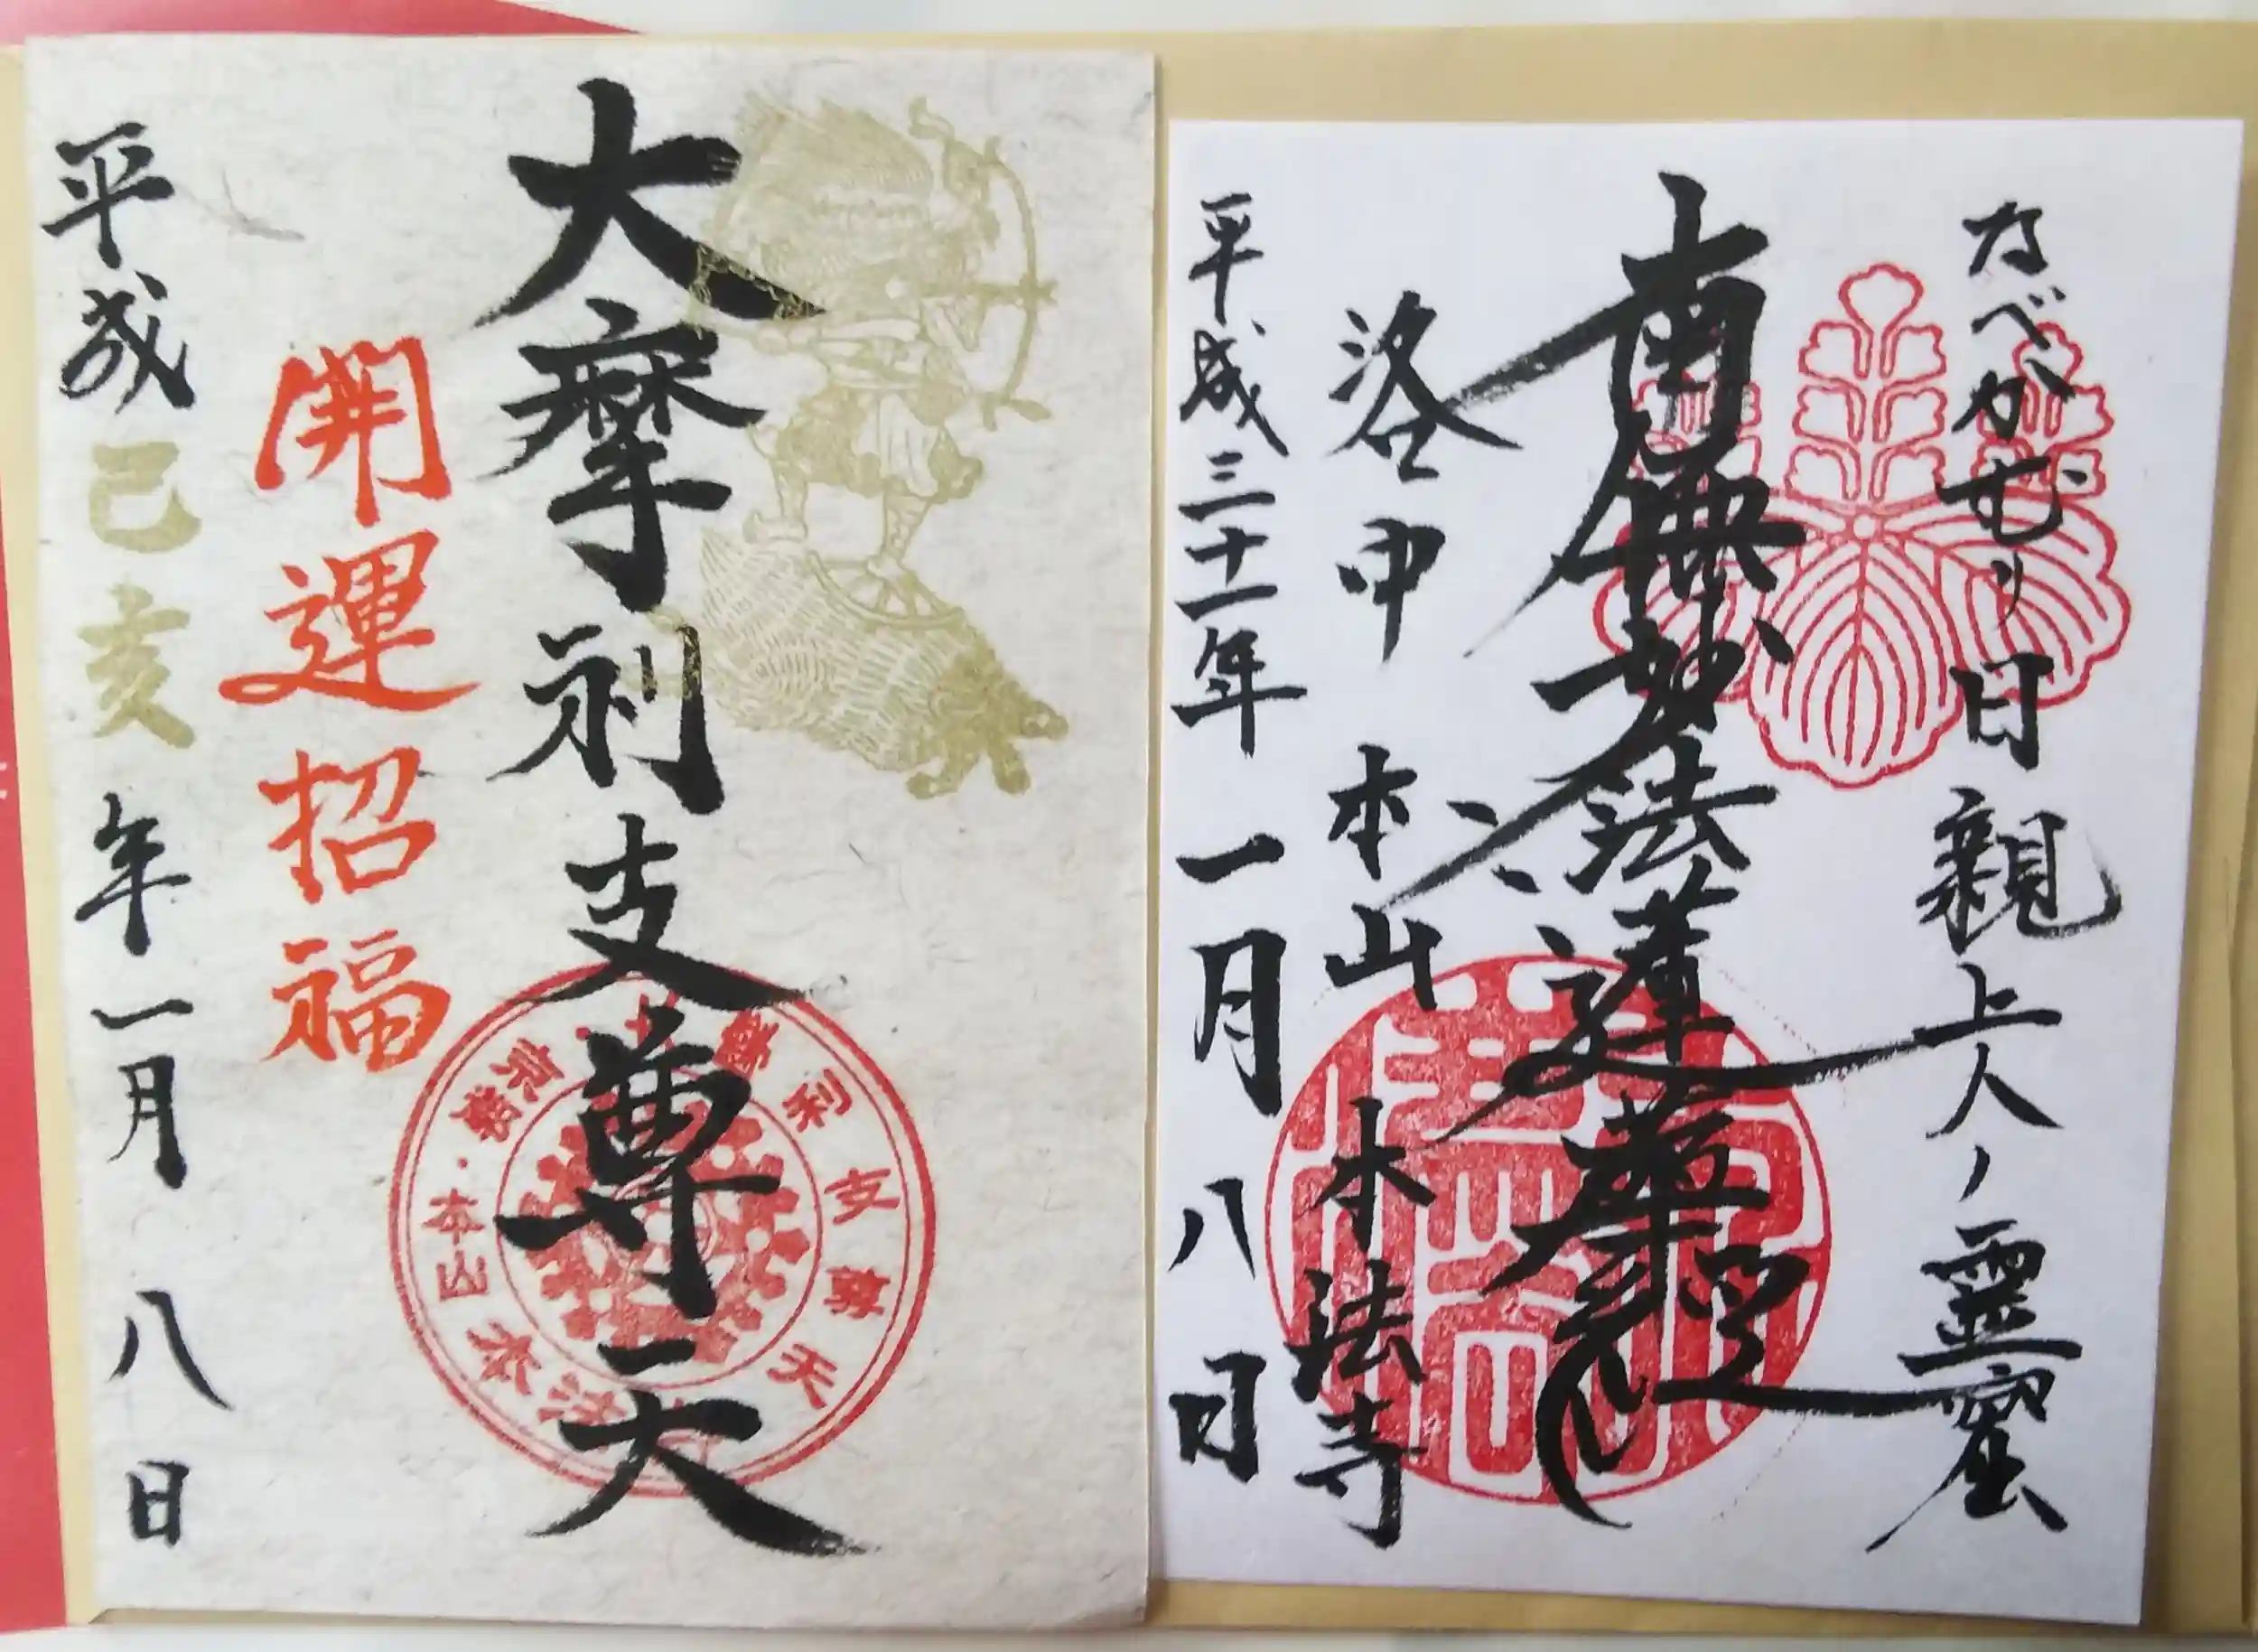 大摩利支尊天
開運招福
平成己亥年一月八日
京都・大摩利支尊天
本山本法寺
なべかむり日親上人ノ霊窟
南無妙法蓮華経
洛中 本山 本法寺
平成三十一年一月八日